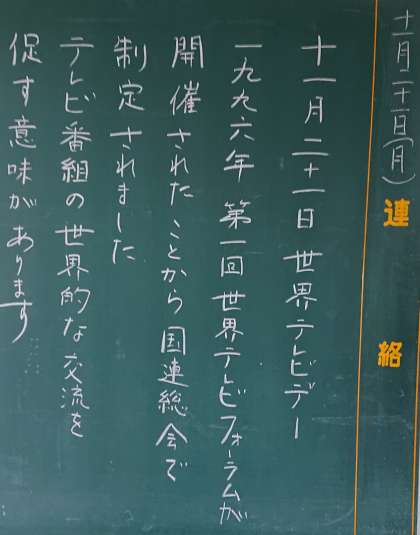 十一月二十一日(月)
連絡
十一月二十一日 世界テレビデー
一九九六年 第一回世界テレビフォーラムが
開催されたことから国連総会で
制定されました
テレビ番組の世界的な交流を
促す意味があります